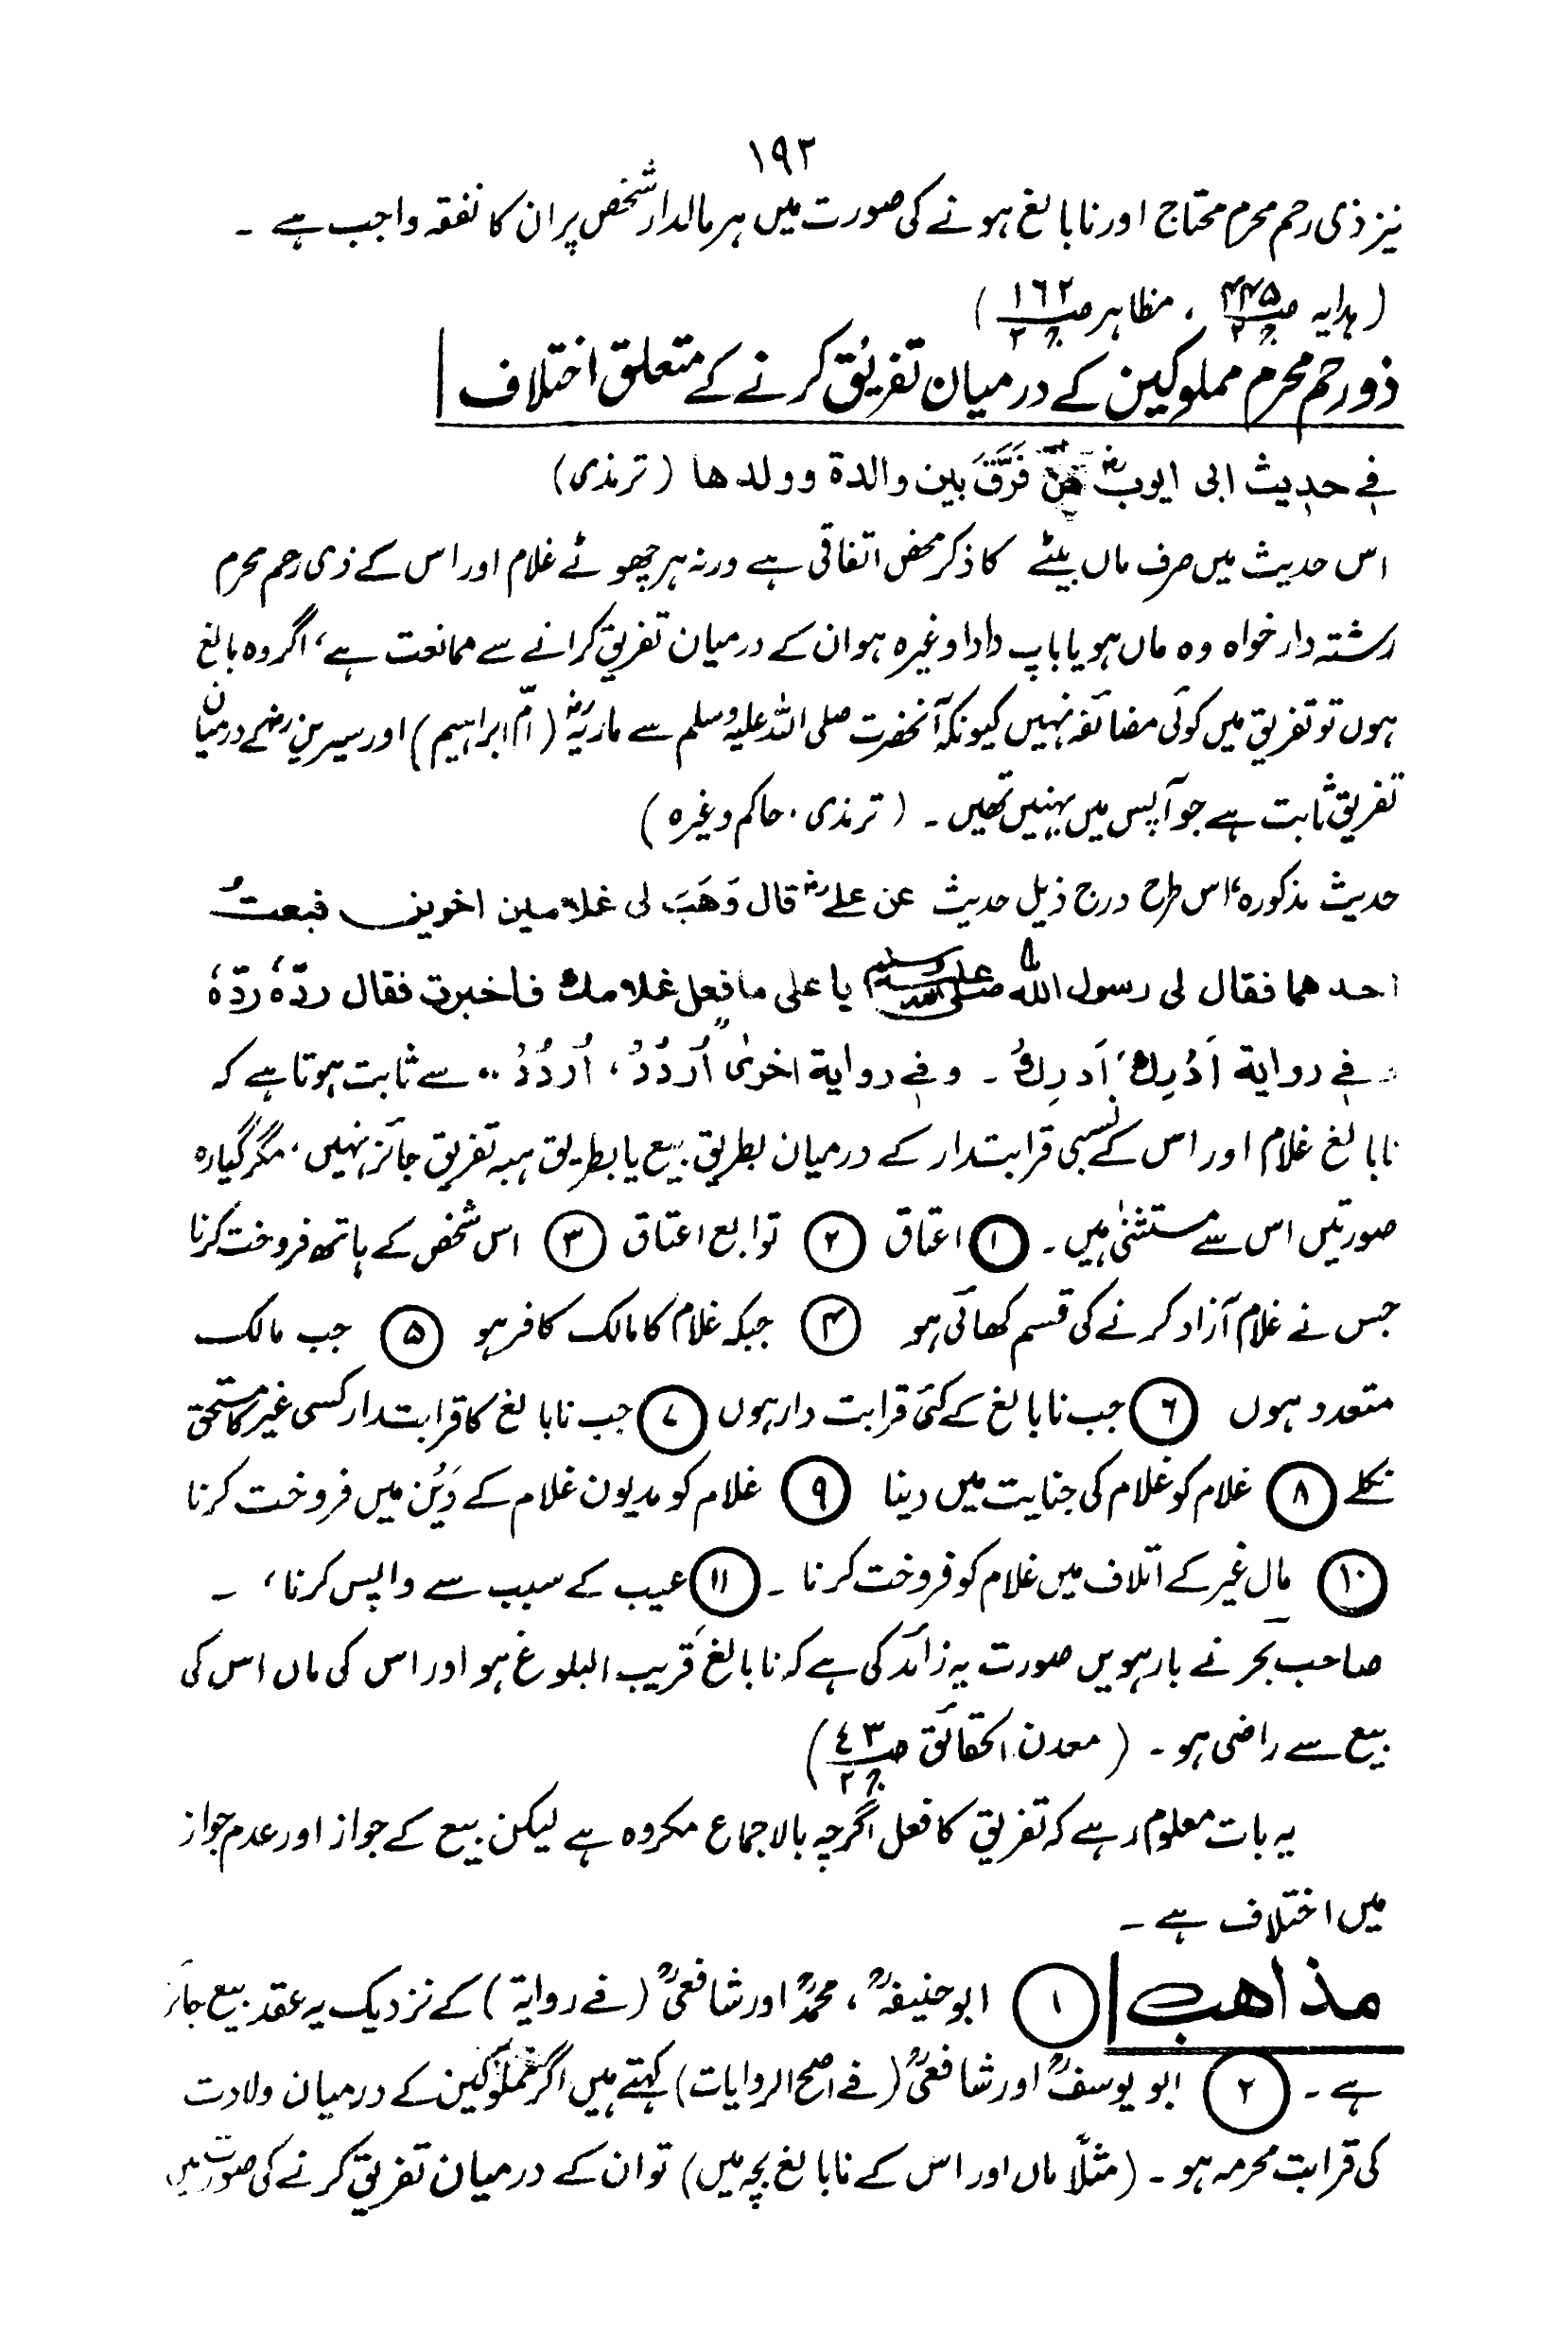 ١٩٢
نیز ذی رحم محرم محتاج اور نابالغ ہونے کی صورت میں ہر مالدار شخص پر ان کا نفقہ واجب ہے ۔
(ہدایہ صـ ۴۴۵ ج ۲ ، مظاہر صـ ١٦٢ ج ۲ )
ذورحم محرم مملوکین کے درمیان تفریق کرنے کے متعلق اختلاف
فے حدیث ابی ایوبؓ من فَرَّقَ بین والدة وولدها (ترمذی)
اس حدیث میں صرف ماں بیٹے کا ذکر محض اتفاقی ہے ورنہ ہر چھوٹے غلام اور اس کے ذی رحم محرم
رشتہ دار خواہ وہ ماں ہو یا باپ دادا وغیرہ ہو ان کے درمیان تفریق کرانے سے ممانعت ہے، اگر وہ بالغ
ہوں تو تفریق میں کوئی مضائقہ نہیں کیونکہ آنحضرت صلی اللہ علیہ وسلم سے ماریہؓ (امّ ابراہیم) اور سیرینؓ کے درمیان
تفریق ثابت ہے جو آپس میں بہنیں تھیں ۔ (ترمذی ، حاکم وغیرہ )
حدیث مذکورہ، اس طرح درج ذیل حدیث عن علےؓ قال وَهَبَ لی غلامین اخوین فبعتُ
احدهما فقال لی رسول اللہ صلی اللہ علیہ وسلم یا علی ما فعل غلامك فاخبرته فقال ردّہٗ ردّہٗ
وفے روایة اَدْرِكْ، اَدرِكْ ۔ وفے روایة اخریٰ "اُردُدْ، اُردُدْ" سے ثابت ہوتا ہے کہ
نابالغ غلام اور اس کے نسبی قرابتدار کے درمیان بطریق بیع یا بطریق ہبہ تفریق جائز نہیں، مگر گیارہ
صورتیں اس سے مستثنیٰ ہیں ۔ ① اعتاق ② توابع اعتاق ③ اس شخص کے ہاتھ فروخت کرنا
جس نے غلام آزاد کرنے کی قسم کھائی ہو ④ جبکہ غلام کا مالک کافر ہو ⑤ جب مالک
متعدد ہوں ⑥ جب نابالغ کے کئی قرابت دار ہوں ⑦ جب نابالغ کا قرابتدار کسی غیر کا مستحق
نکلے ⑧ غلام کو غلام کی جنایت میں دینا ⑨ غلام کو مدیون غلام کے دَیْن میں فروخت کرنا
⑩ مال غیر کے اتلاف میں غلام کو فروخت کرنا ۔ ⑪ عیب کے سبب سے واپس کرنا، ۔
صاحب بحر نے بارہویں صورت یہ زائد کی ہے کہ نابالغ قریب البلوغ ہو اور اس کی ماں اس کی
بیع سے راضی ہو ۔ (معدن الحقائق صـ ٤٣ ج ۲)
یہ بات معلوم رہے کہ تفریق کا فعل اگرچہ بالاجماع مکروہ ہے لیکن بیع کے جواز اور عدم جواز
میں اختلاف ہے ۔
مذاهب ① ابوحنیفہؒ، محمدؒ اور شافعیؒ (فے روایة) کے نزدیک یہ عقد بیع جائز
ہے ۔ ② ابو یوسفؒ اور شافعیؒ (فے اصح الروایات) کہتے ہیں اگر مملوکین کے درمیان ولادت
کی قرابت محرمہ ہو ۔ (مثلاً ماں اور اس کے نابالغ بچہ میں) تو ان کے درمیان تفریق کرنے کی صورت میں